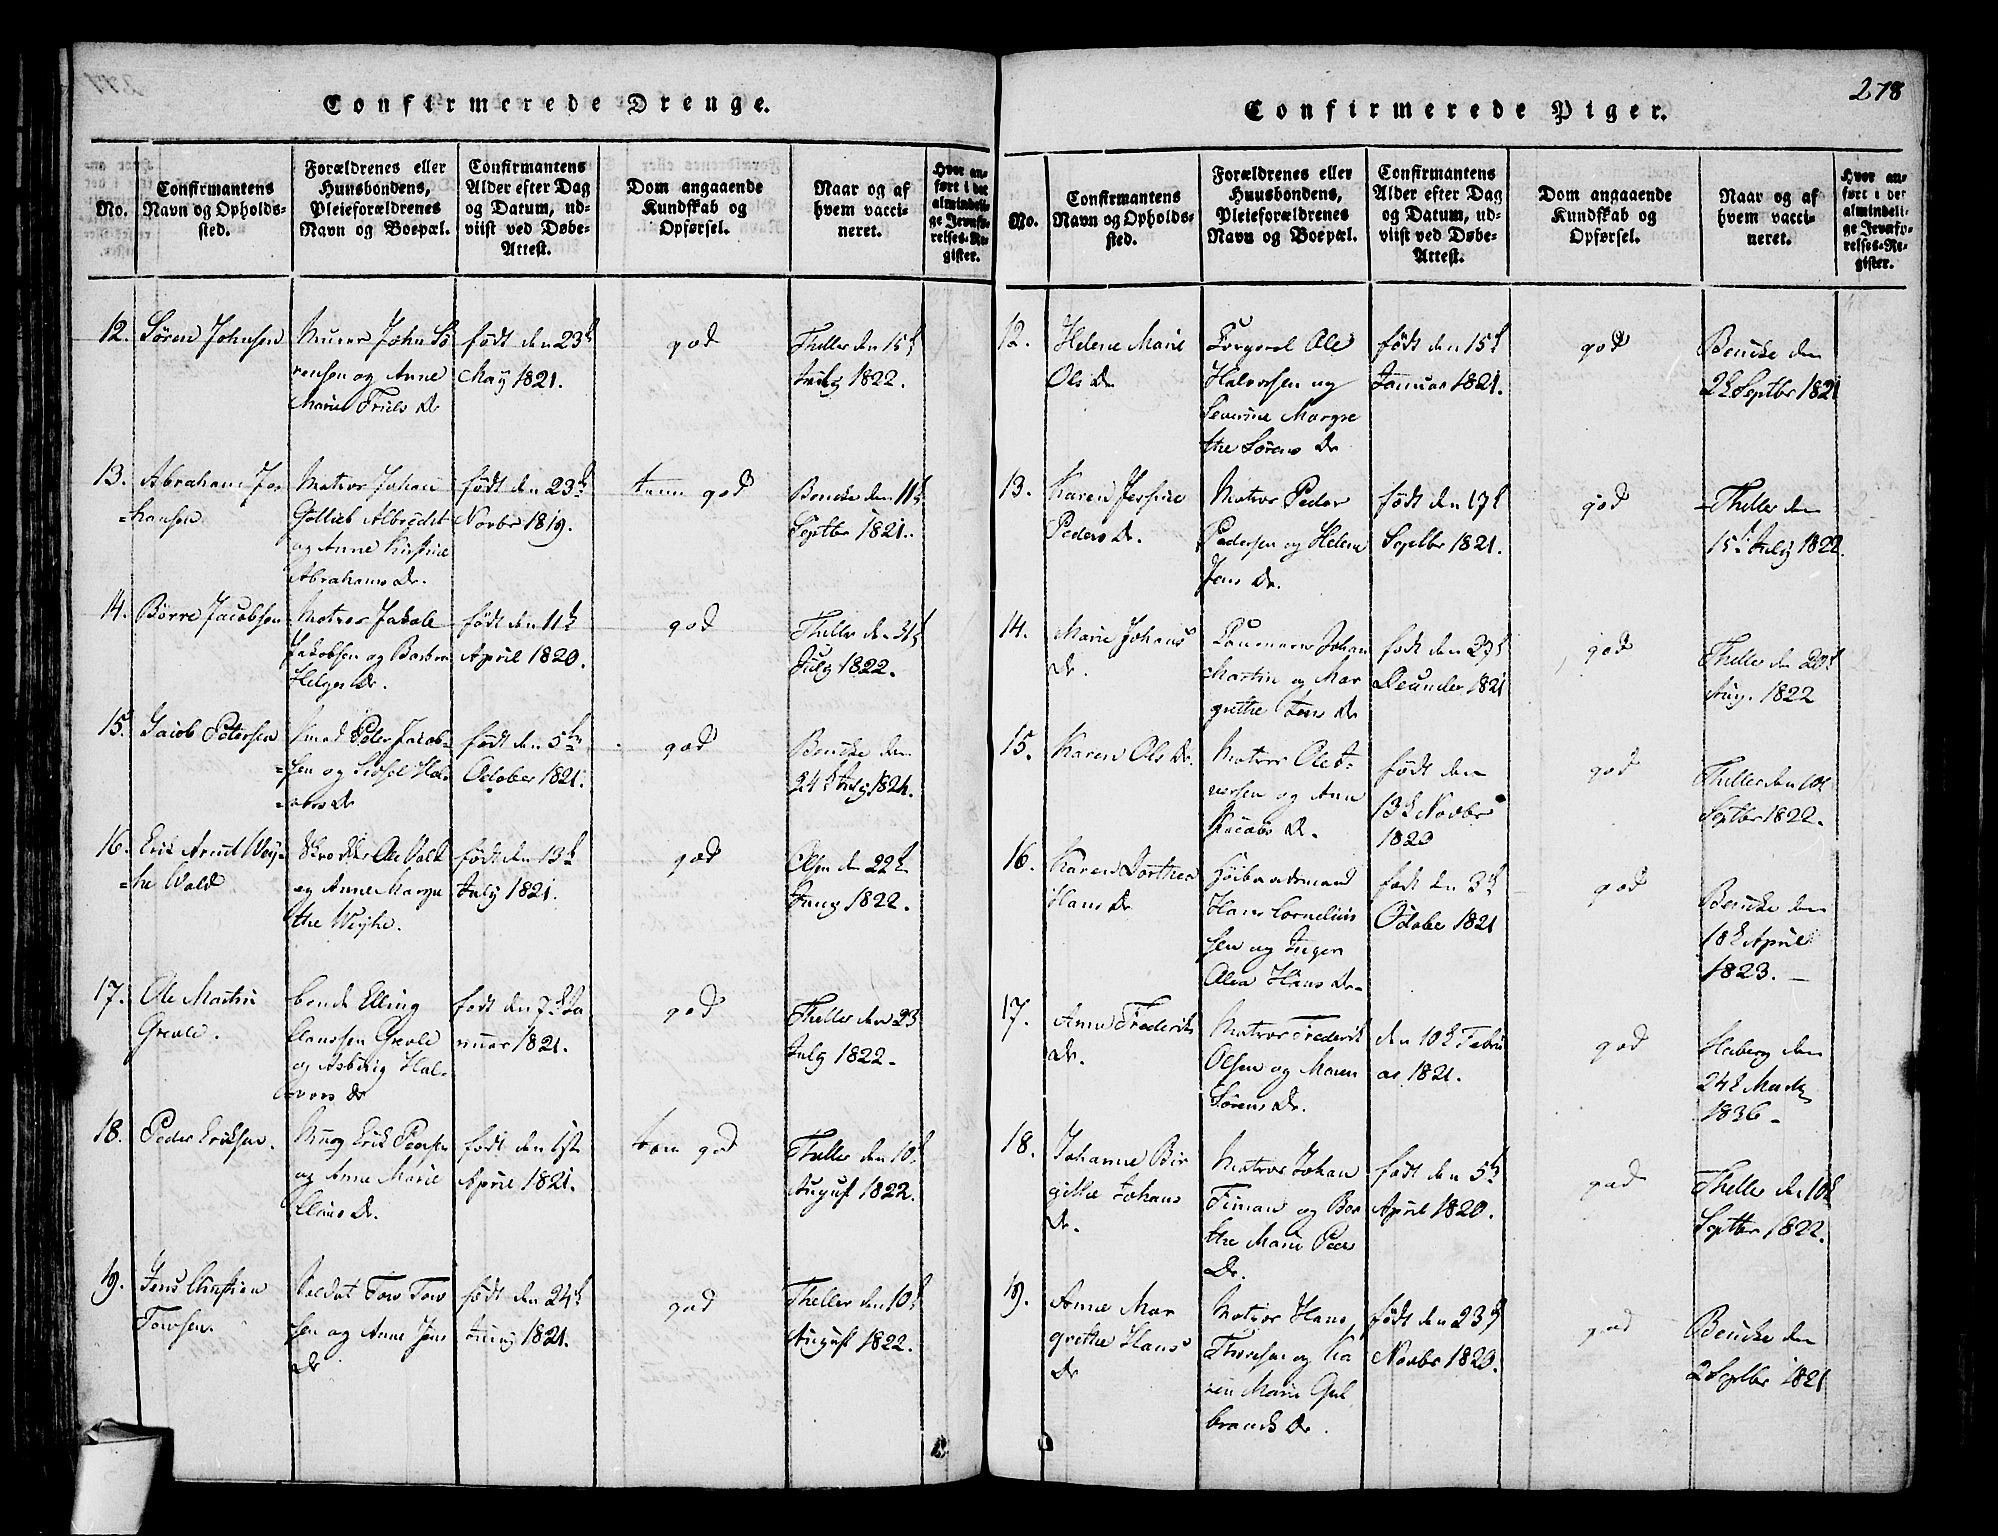 Confirmerede Drenge.
No.
Confirmantens
Navn og Opholds-
sted.
Forældrenes eller
Huusbondens,
Pleieforældrenes
Navn og Boepæl.
Confirmantens
Alder efter Dag
og Datum, ud-
viist ved Døbe-
Attest.
Dom angaaende
Kundskab og
Opførsel.
Naar og af
hvem vacci-
neret.
Hvor an-
ført i det
almindeli-
ge Jevnfø-
relses-Re-
gister.
12.
Søren Johnsen
Murer John Sø
rensen og Anne
Marie Truls Dr
født den 23de
May 1821.
god
Theller den 15de
July 1822.
13.
Abraham Jo
=hansen
Matros Johan
Gottlieb Albrecht
og Anne Kirstine
Abrahams Dr.
født den 23de
Novbr 1819.
tem god
Bencke den 11te
Septbr 1821.
14.
Børre Jacobsen
Matros Jakob
Jakobsen og Barbra
Helges Dr.
født den 11te
April 1820.
god
Theller den 31te
July 1822.
15.
Jacob Petersen
Smed Peter Jacob-
=sen og Sidsel Hal
=vors Dr
født den 5te
October 1821.
god
Bencke den
24de July 1821.
16.
Erik Arnt Wey=
=he Wold
Ole Wold
og Anne Margre
the Weyhe.
født den 13de
July 1821.
god
Olsen den 22de
Juny 1822.
17.
Ole Martin
Grevle.
bonde Elling
Clanssen Grevle
og Asbiørg Hal-
vors Dr
født den 7de Ja
nuar 1821.
god
Theller den 23
July 1822.
18.
Peder Eriksen.
Erik Peersen
og Anne Marie
Clans Dr.
født den 1ste
April 1821.
tem god
Theller den 10de
August 1822.
19.
Jens Christian
Towsen.
Soldat Tow Tow
sen og Anne Jens
Dr
født den 24de
Juny 1821.
god
Theller den 10de
August 1822.
278
Confirmerede Piger.
No.
Confirmantens
Navn og Opholds-
sted.
Forældrenes eller
Huusbondens,
Pleieforældrenes
Navn og Boepæl.
Confirmantens
Alder efter Dag
og Datum, ud-
viist ved Døbe-
Attest.
Dom angaaende
Kundskab og
Opførsel.
Naar og af
hvem vacci-
neret.
Hvor an-
ført i det
almindeli-
ge Jevnfø-
relses-Re-
gister.
12.
Helene Marie
Ols Dr
Ole
Halvorsen og
Severine Margre
the Sørens Dr
født den 15de
Januar 1821.
god
Bencke den
2de Septbr 1821
13.
Karen Jersine
Peders Dr.
Matros Peder
Pedersen og Helene
Jens Dr.
født den 17de
Septbr 1821.
god
Theller den
15de July 1822.
14.
Marie Johans
Dr.
Johan
Martin og Mar
grethe Jens Dr
født den 27de
December 1821
god
Theller den 20de
Aug. 1822
15.
Karen Ols Dr.
Matros Ole I-
versen og Ann
Jacobs Dr.
født den
13de Novbr
1820
god
Theller den 10de
Septbr 1822.
16.
Karen Dorthea
Hans Dr
Hans Cornelius
sen og Inger
Olea Hans Dr-
født den 3de
October 1821
god
Bencke den
18de April
1823.
17.
Anne Frederiks
Dr.
Matros Frederik
Olsen og Maren
Sørens Dr.
den 10de Febru
ar 1821.
god
Heiberg den
24de Marts
1836
18.
Johanne Bir
gitte Johans
Dr.
Matros Johan
Timan og Bor
the Marie Peers
Dr.
født den 5te
April 1820.
god
Theller den 10de
Septbr 1822.
19.
Anne Mar
grethe Hans
Dr
Matros Hans
Thoresen og Ka
ren Marie Gul
brands Dr.
født den 23de
Novbr 1820.
god
Bencke den
2 Septbr 1821